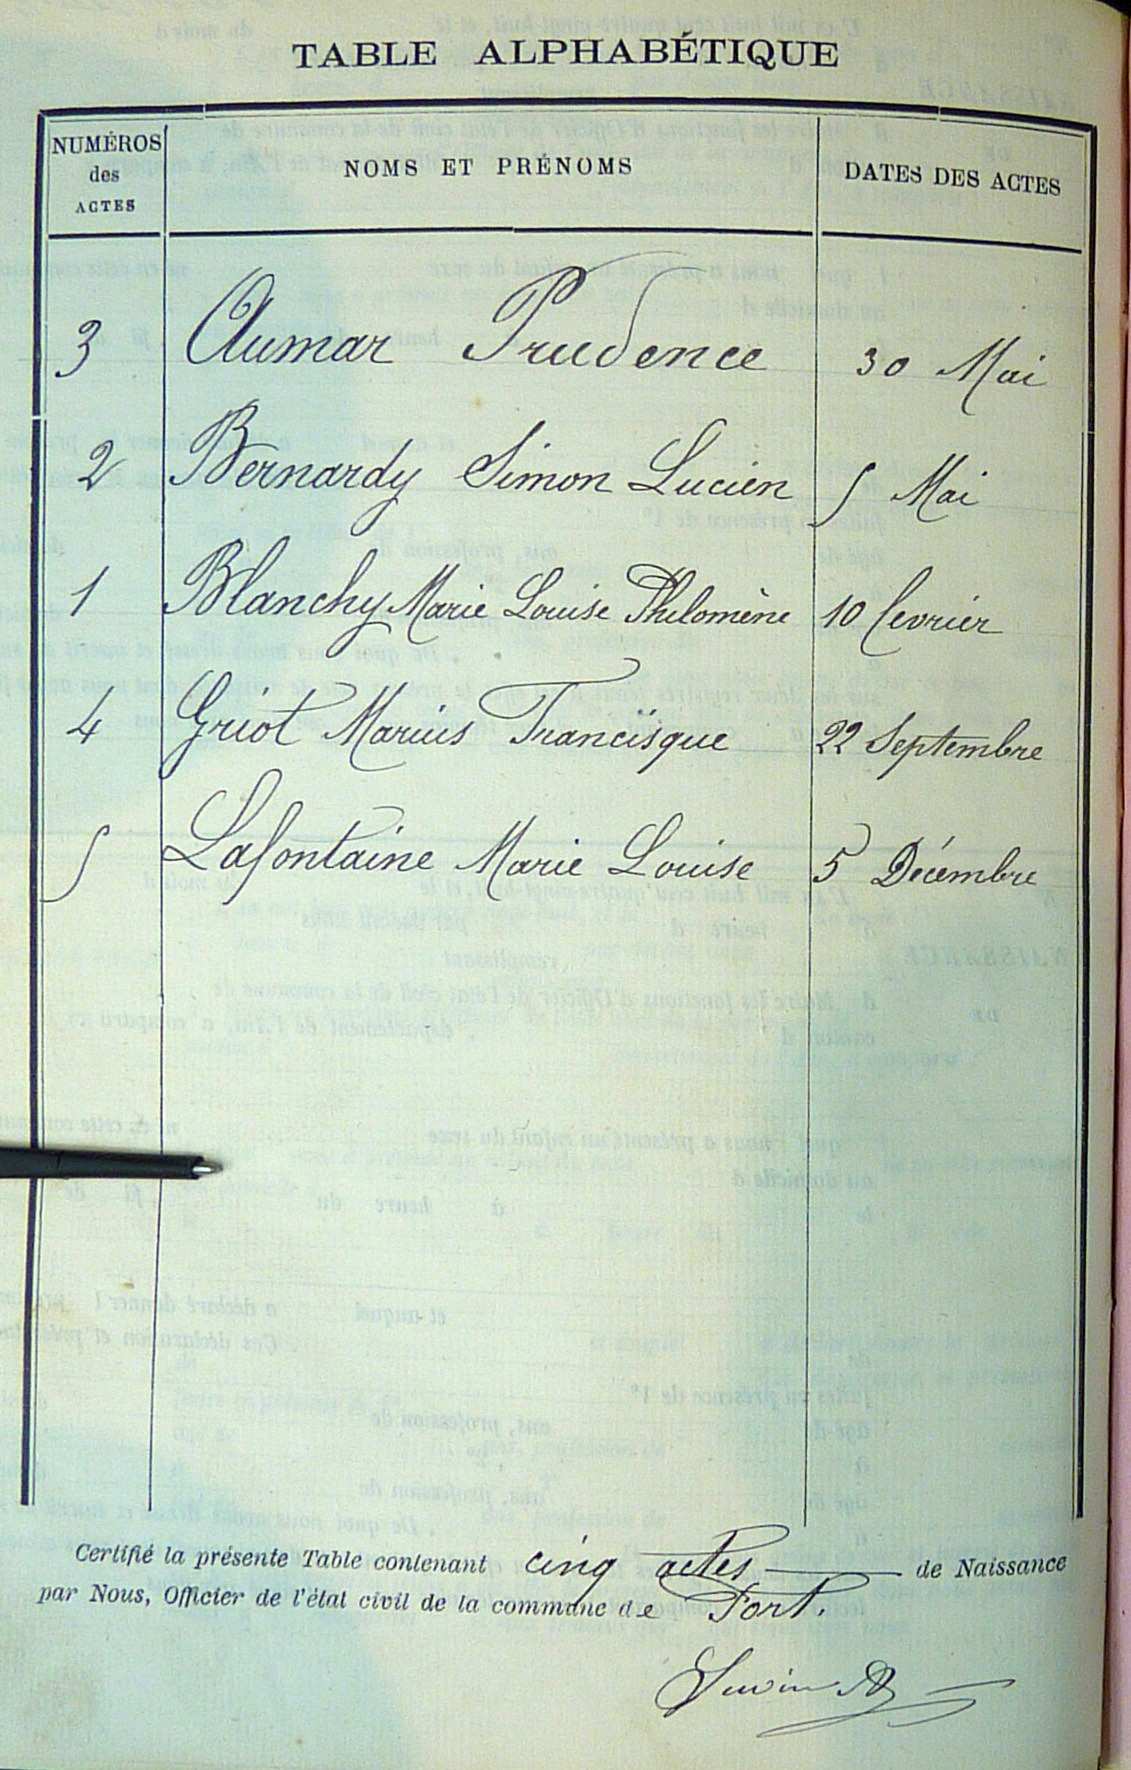 TABLE ALPHABÉTIQUE
NUMÉROS des ACTES NOMS ET PRÉNOMS DATES DES ACTES
3 Aumar Prudence 30 Mai
2 Bernardy Simon Lucien 5 Mai
1 Blanchy Marie Louise Philomène 10 fevrier
4 Griot Marius Francisque 22 Septembre
5 Lafontaine Marie Louise 5 Décembre
Certifié la présente Table contenant cinq actes de Naissance
par Nous, Officier de l'état civil de la commune de Port.